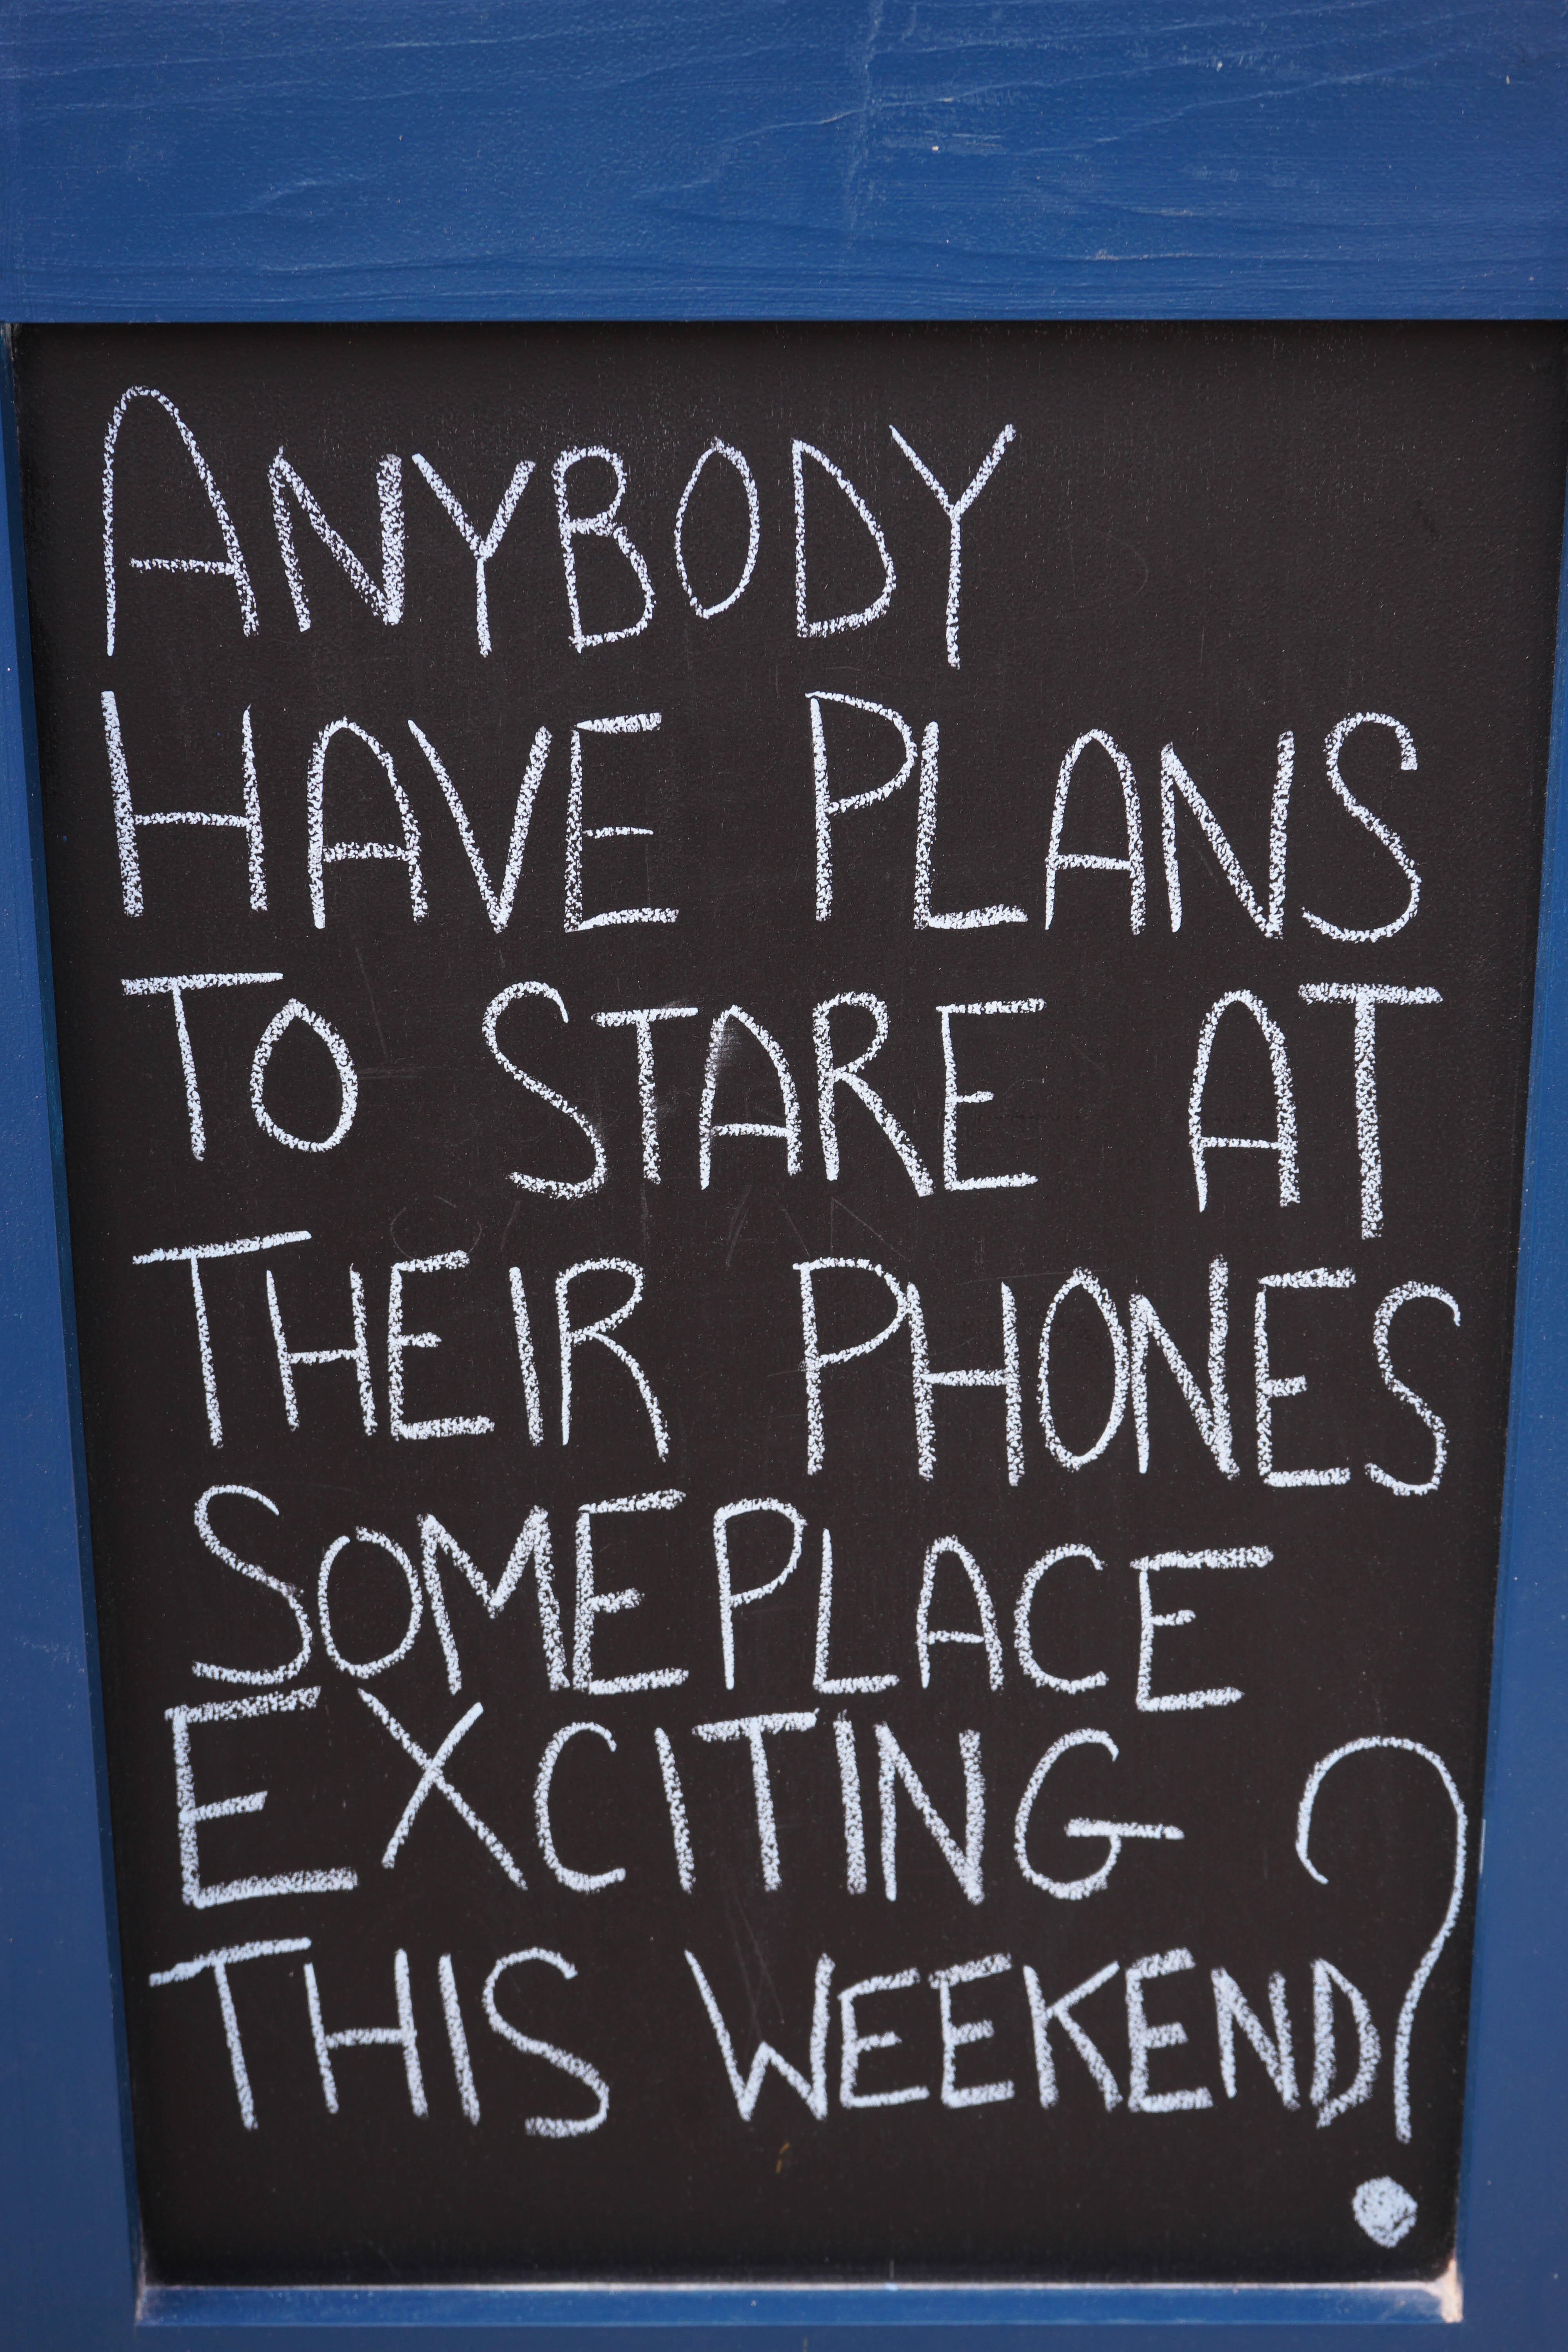 ANYBODY
HAVE PLANS
TO STARE AT
THEIR PHONES
SOMEPLACE
EXCITING
THIS WEEKEND?